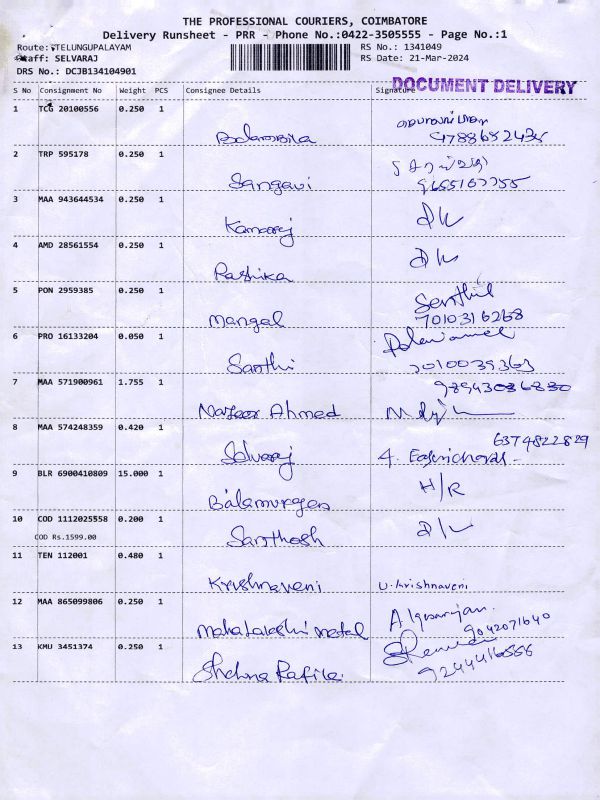 THE PROFESSIONAL COURIERS, COIMBATORE
Delivery Runsheet - PRR - Phone No.:0422-3505555 - Page No.:1
Route: TELUNGUPALAYAM RS No.: 1341049
Staff: SELVARAJ RS Date: 21-Mar-2024
DRS No.: DCJB134104901
DOCUMENT DELIVERY
S No Consignment No Weight PCS Consignee Details Signature
1 TCG 20100556 0.250 1
9788682435
2 TRP 595178 0.250 1
Sangavi 9655167755
3 MAA 943644534 0.250 1
Kamaraj
4 AMD 28561554 0.250 1
Rashika
5 PON 2959385 0.250 1 Senthil
Mangal 7010316268
6 PRO 16133204 0.050 1
Santhi
7 MAA 571900961 1.755 1
Naseer Ahmed
8 MAA 574248359 0.420 1 6374822829
Selvaraj 4.
9 BLR 6900410809 15.000 1 H/R
Balamurugan
10 COD 1112025558 0.200 1
COD Rs.1599.00 Santhosh
11 TEN 112001 0.480 1
Krishnaveni U. Krishnaveni
12 MAA 865099806 0.250 1
Mahalakshmi metal 9042071640
13 KMU 3451374 0.250 1